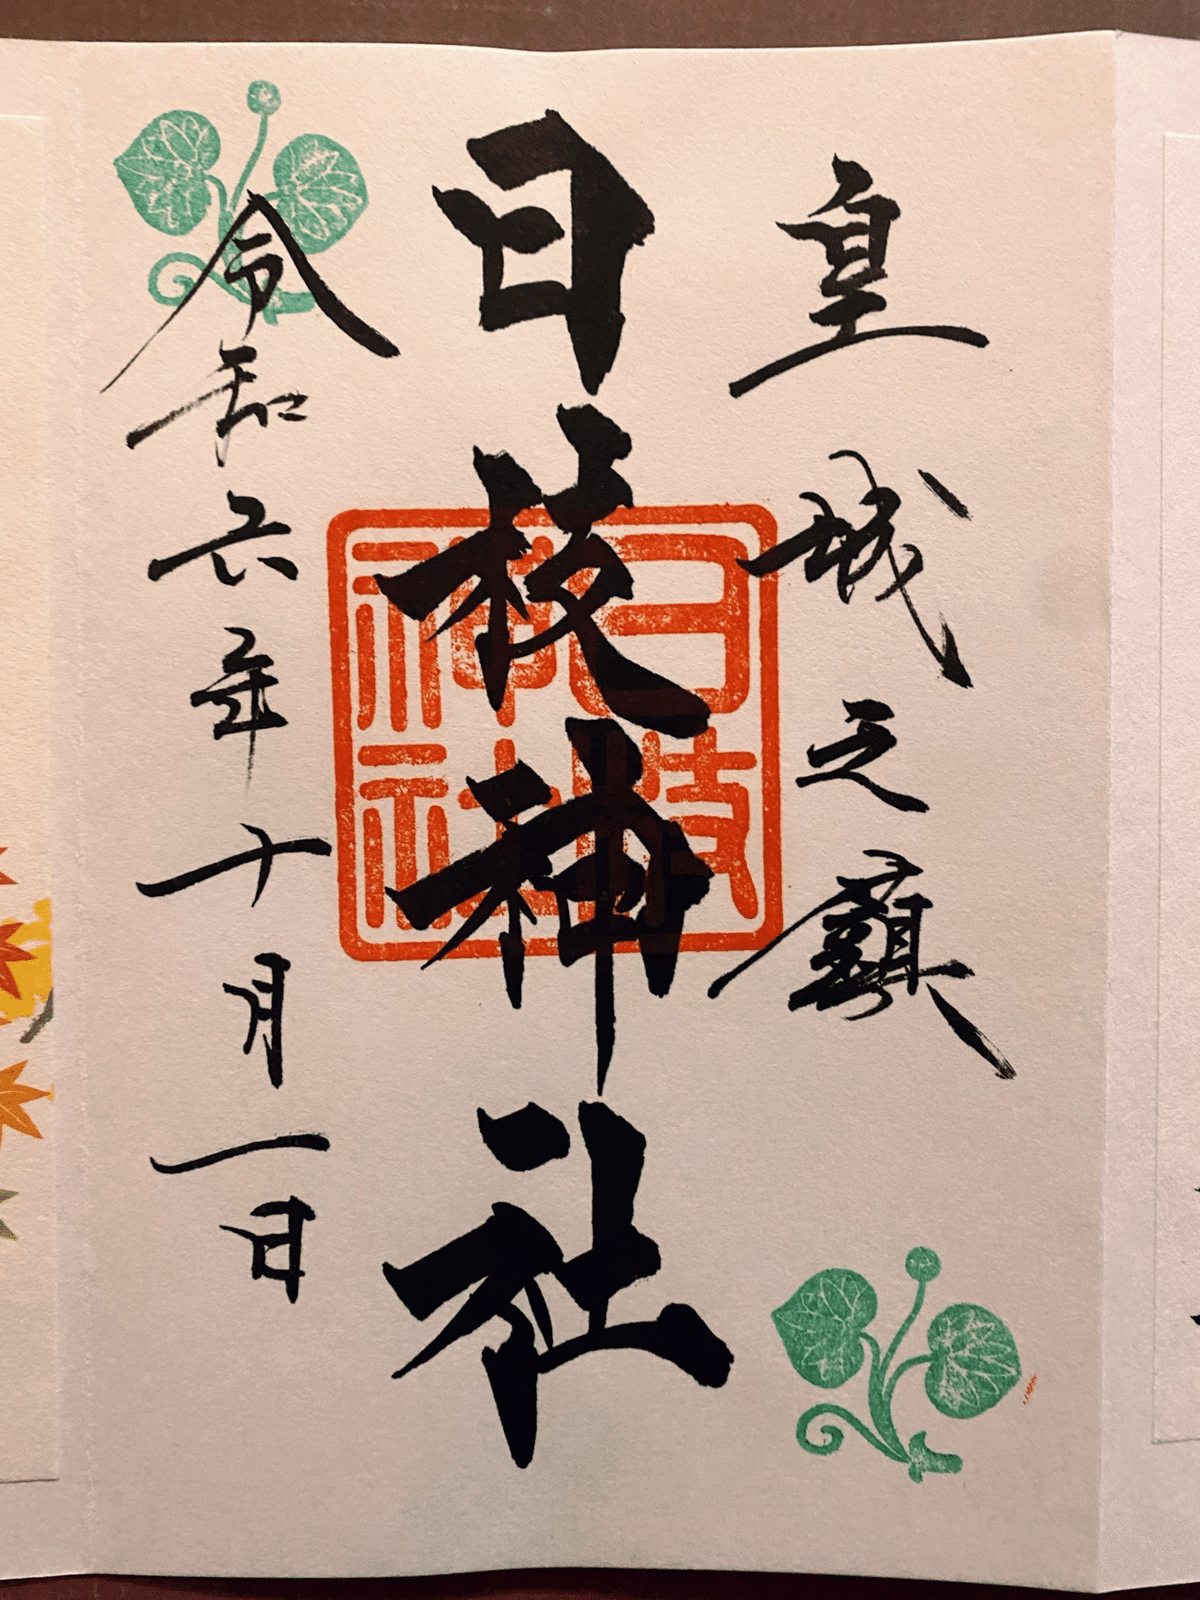 皇城之鎮
日枝神社
令和六年十月一日
日枝
神社